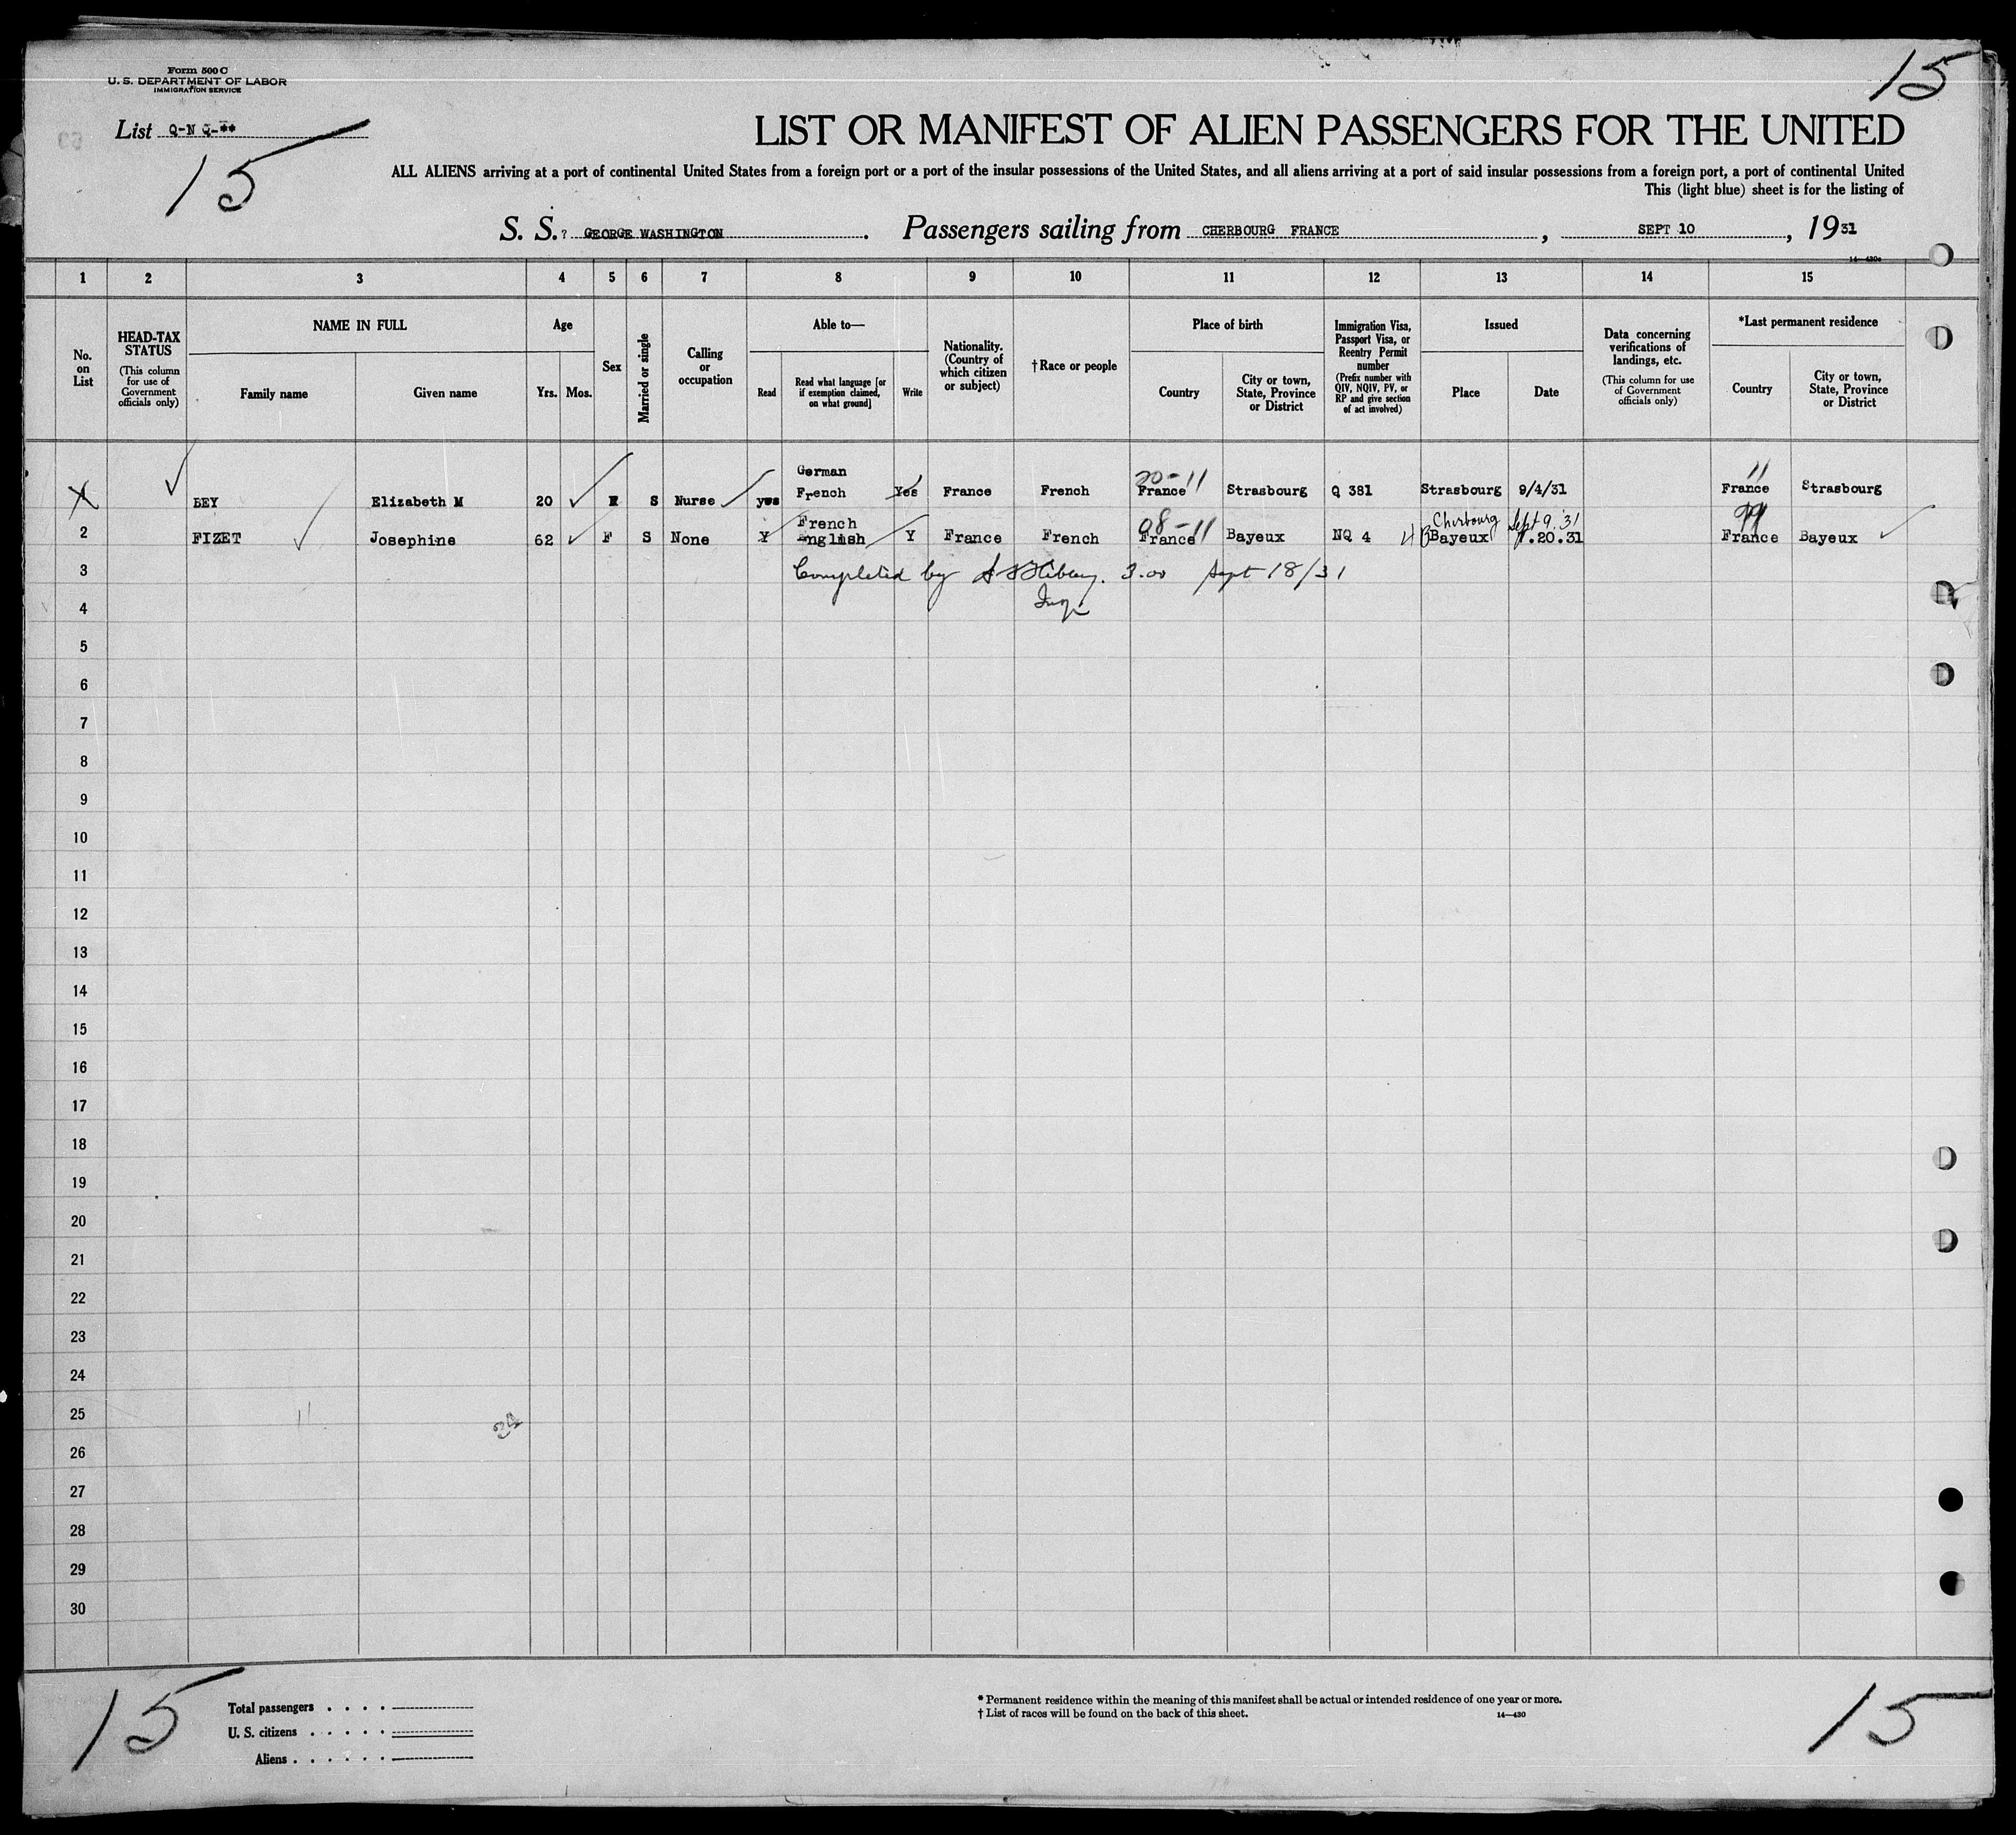 15
Form 500 C
U. S. DEPARTMENT OF LABOR
IMMIGRATION SERVICE
List Q-N Q-**
15
LIST OR MANIFEST OF ALIEN PASSENGERS FOR THE UNITED
ALL ALIENS arriving at a port of continental United States from a foreign port or a port of the insular possessions of the United States, and all aliens arriving at a port of said insular possessions from a foreign port, a port of continental United
This (light blue) sheet is for the listing of
S. S. GEORGE WASHINGTON. Passengers sailing from CHERBOURG FRANCE, SEPT 10, 1931
14—430c
1 2 3 4 5 6 7 8 9 10 11 12 13 14 15
No. on List
HEAD-TAX STATUS (This column for use of Government officials only)
NAME IN FULL
Family name Given name
Age
Yrs. Mos.
Sex
Married or single
Calling or occupation
Able to—
Read Read what language [or if exemption claimed, on what ground] Write
Nationality. (Country of which citizen or subject)
†Race or people
Place of birth
Country City or town, State, Province or District
Immigration Visa, Passport Visa, or Reentry Permit number (Prefix number with QIV, NQIV, PV, or RP and give section of act involved)
Issued
Place Date
Data concerning verifications of landings, etc. (This column for use of Government officials only)
*Last permanent residence
Country City or town, State, Province or District
German
20-11 11
1 BEY Elizabeth M 20 F S Nurse yes French Yes France French France Strasbourg Q 381 Strasbourg 9/4/31 France Strasbourg
French 08-11 Cherbourg Sept 9.31
2 FIZET Josephine 62 F S None Y English Y France French France Bayeux NQ 4 Bayeux .20.31 France Bayeux
3 Completed by 3.00 Sept 18/31
4 Insp
5
6
7
8
9
10
11
12
13
14
15
16
17
18
19
20
21
22
23
24
25
26
27
28
29
30
15
Total passengers
U. S. citizens
Aliens
* Permanent residence within the meaning of this manifest shall be actual or intended residence of one year or more.
† List of races will be found on the back of this sheet.
14—430
15